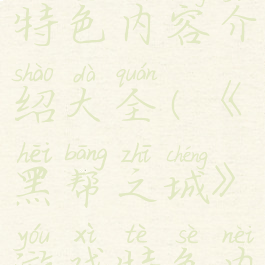 特色内容介
shào dà quán
绍大全(《
hēi bāng zhī chéng
黑帮之城》
yóu xì tè sè nèi
游戏特色内